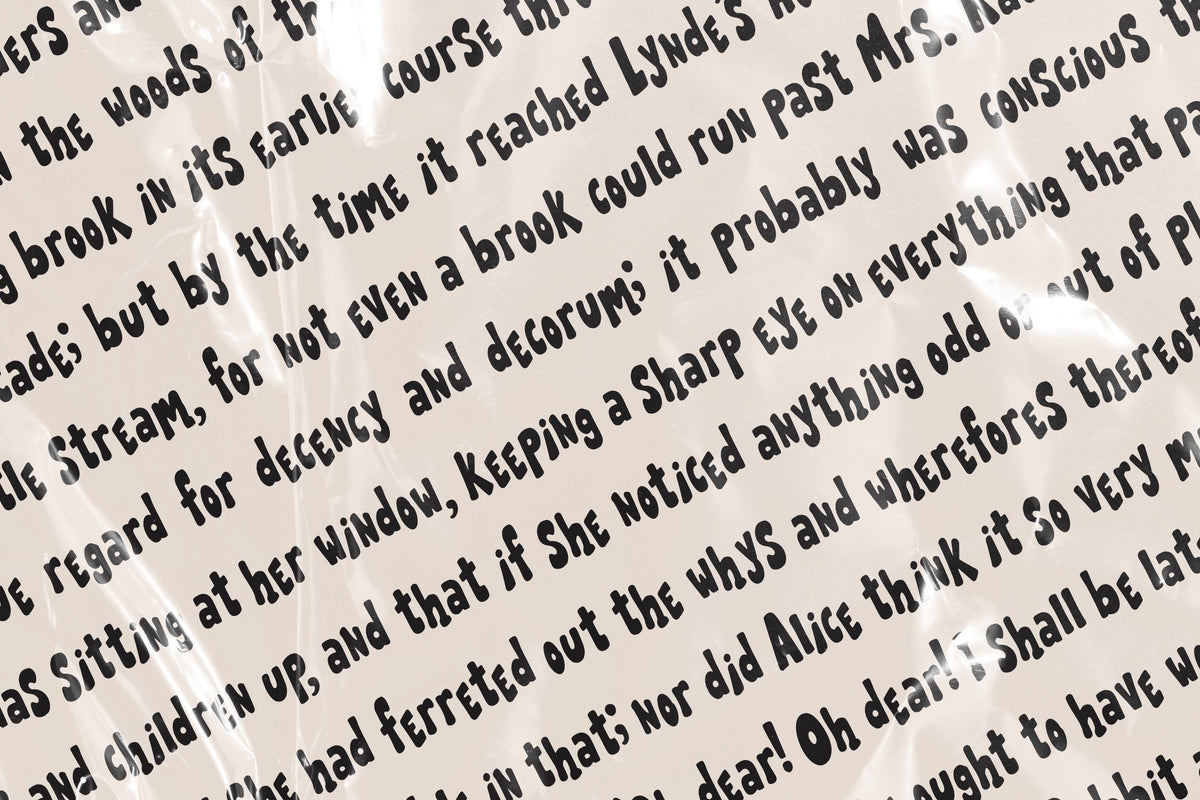 and
the woods of
brook in its earlier course
but by the time it reached Lynde's
Stream, for not even a brook could run past Mrs.
regard for decency and decorum; it probably was conscious
Sitting at her window, Keeping a Sharp eye on everything that
and children up, and that if She noticed anything odd or out of
She had ferreted out the whys and wherefores thereof
in that; nor did Alice think it So very
dear! Oh dear! I Shall be
ought to have